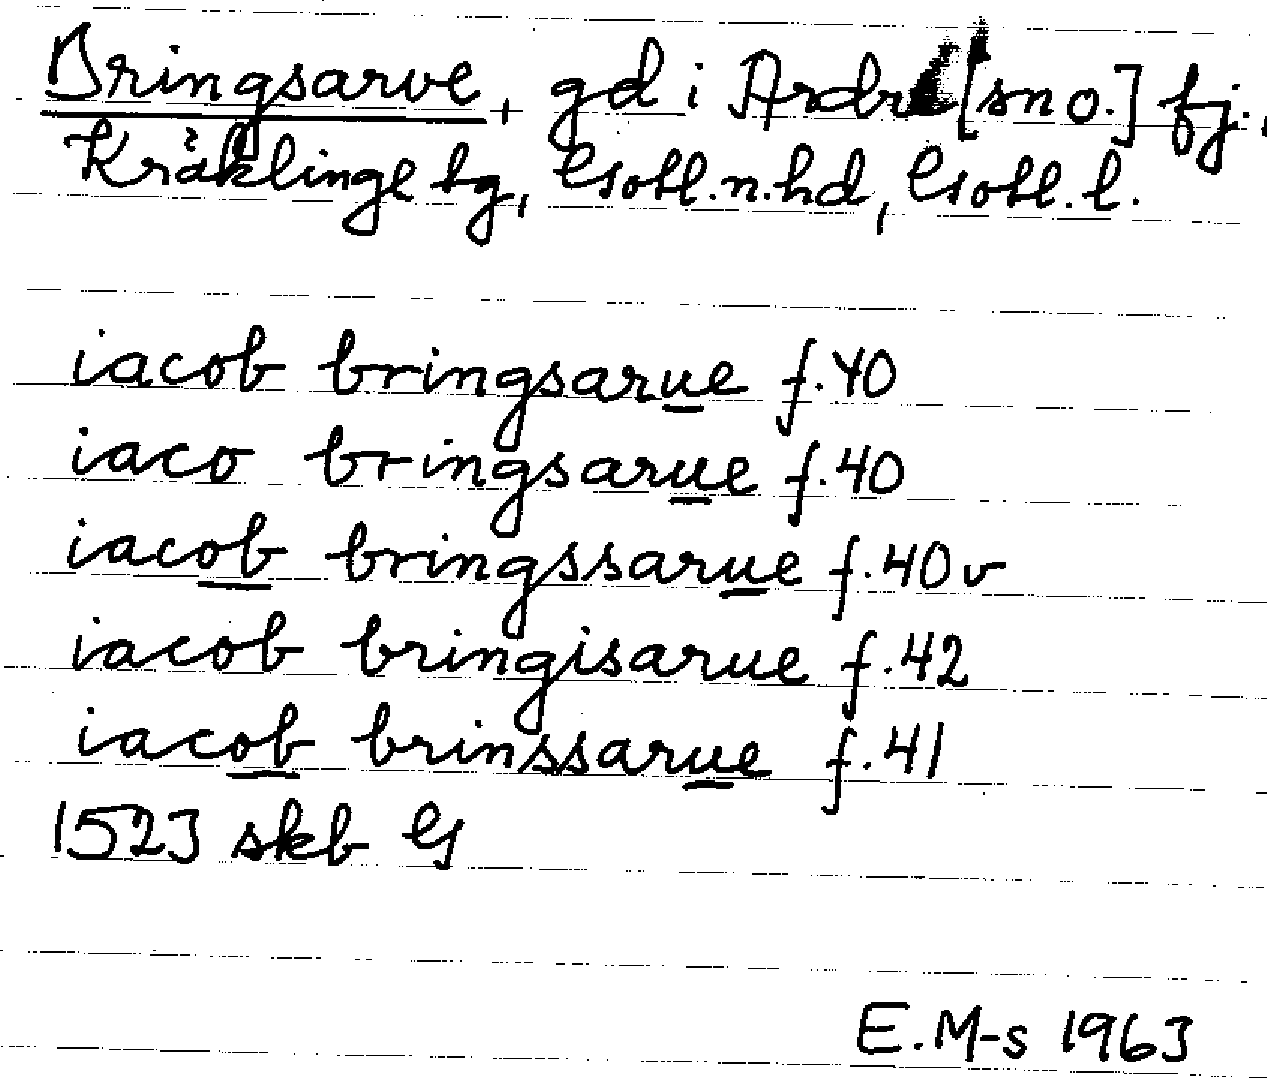 Bringsarve, gd i Ardre [sn o.] fj.,
Kräklinge tg, Gotl.n.hd, Gotl.l.
iacob bringsarue f.40
iaco bringsarue f.40
iacob bringssarue f.40v
iacob bringisarue f.42
iacob brinssarue f.41
1523 skb G
E.M-s 1963